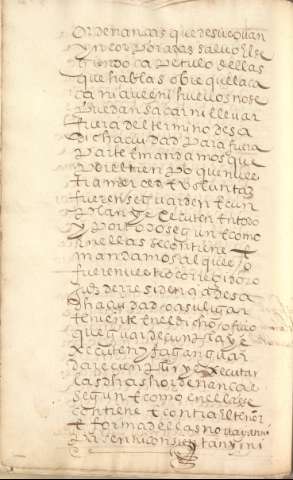 Ordenanças que de suso van
yncorporadas salvo el se
gundo capitulo dellas
que habla sobre que la ca
ça ni aves ni huevos no se
puedan sacar ni llevar
fuera del termino desa
dicha ciudad para fuera
parte e mandamos que
por el tienpo que nuestra
merced e voluntad
fueren se guarden e cun
plan y executen en todo
y por todo segun e como
en ellas se contiene e
mandamos al que es o
fuere nuestro corregidor o
juez de residencia desa
dha ciudad o a su lugar
teniente en el dicho oficio
que guarde cunpla y e
xecute e haga guar
dar e cunplir y executar
las dhas hordenanças
segun e como en ellas se
contiene e contra el tenor
e forma dellas no vayan ni
pasen ni consientan yr ni